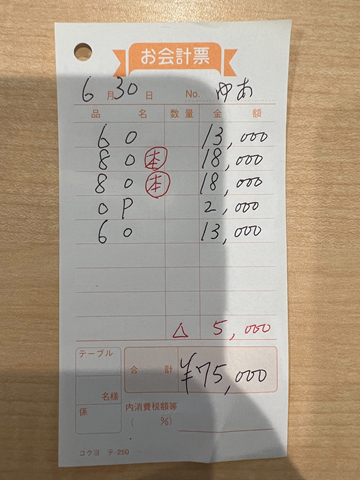 お会計票
6月30日 No. ゆあ
品名 数量 金額
60 13,000
80 本 18,000
80 本 18,000
OP 2,000
60 13,000
△ 5,000
テーブル
名様
係
合計 ¥75,000
内消費税額等
( %)
コクヨ テ-250